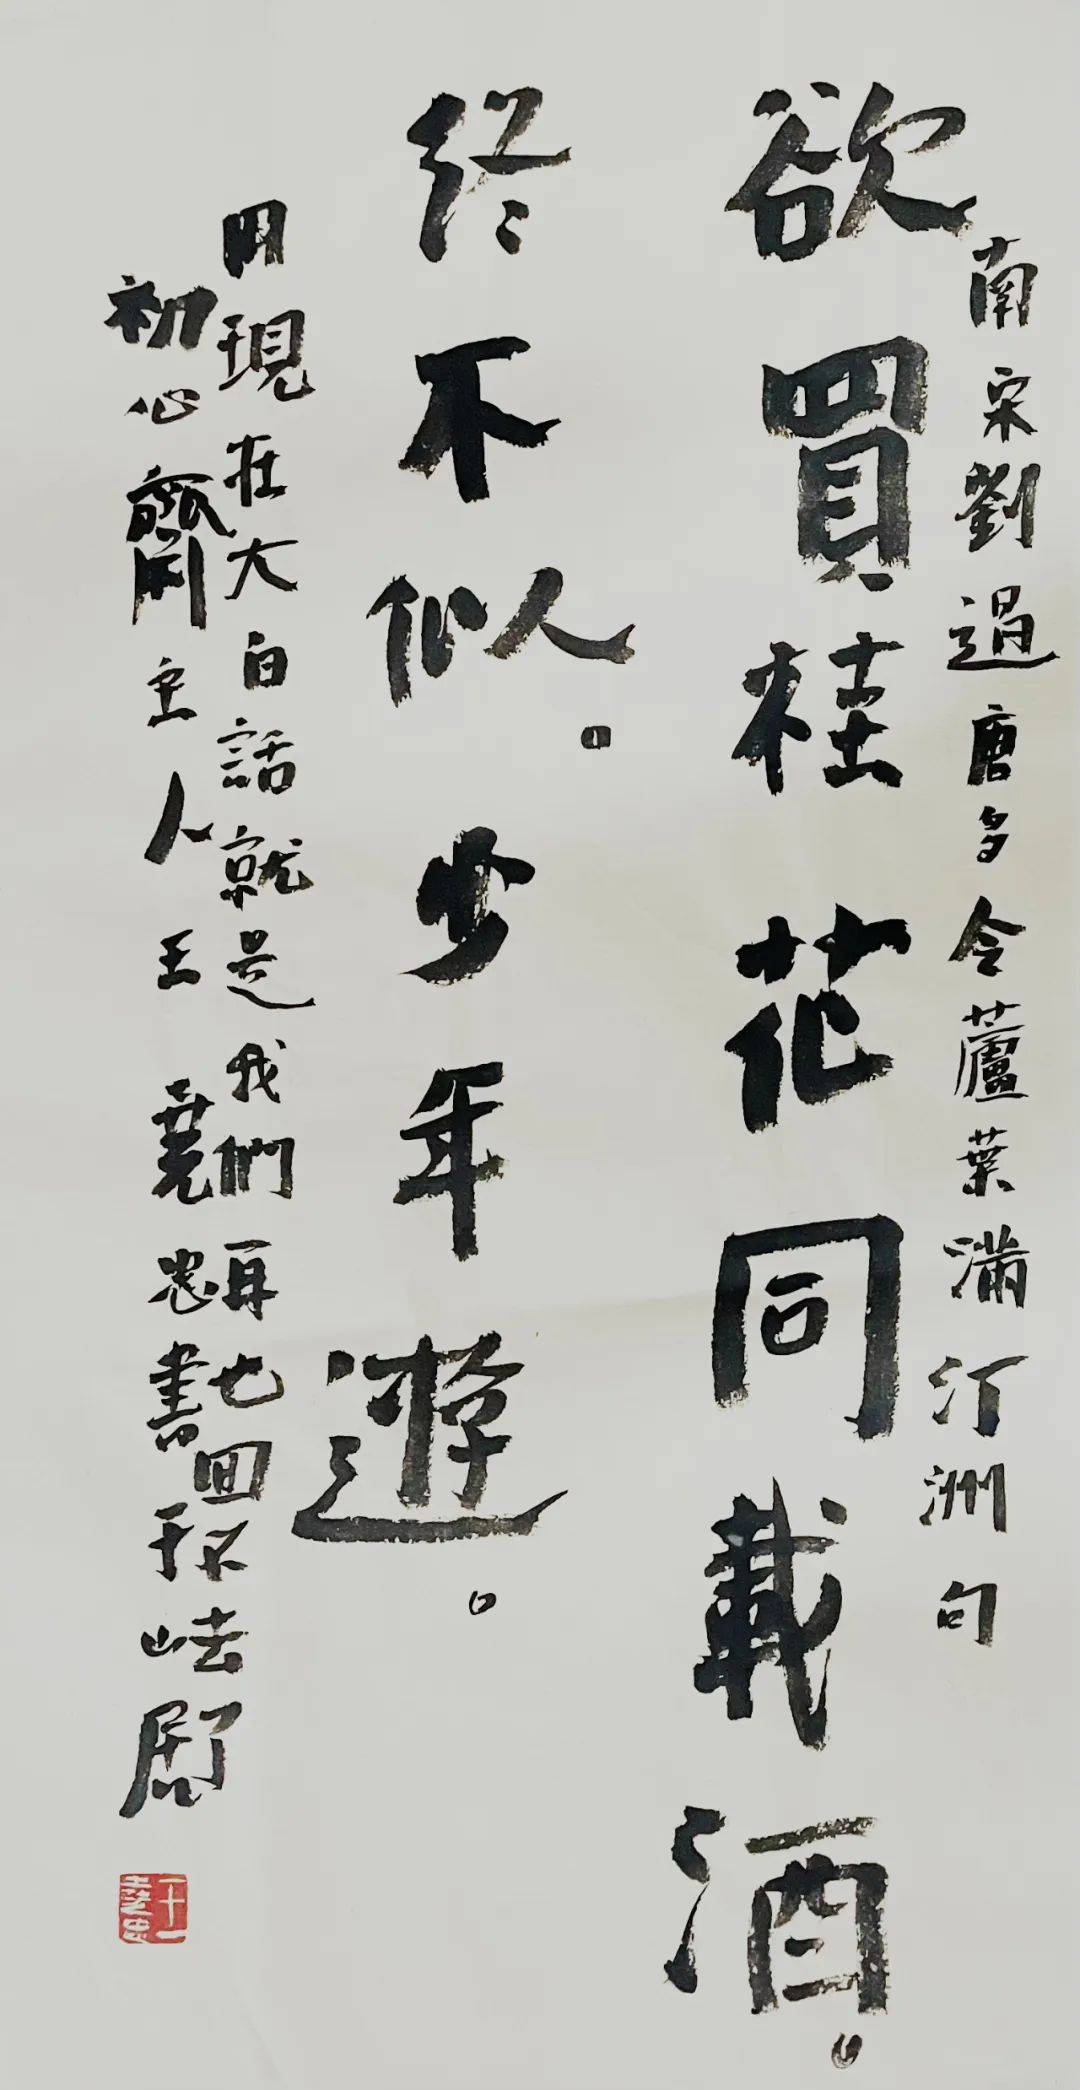 南宋劉過唐多令蘆葉滿汀洲句
欲買桂花同載酒。
終不似人。少年遊。
用現在大白話就是我們再也回不去
初心齋主人王堯忠書于